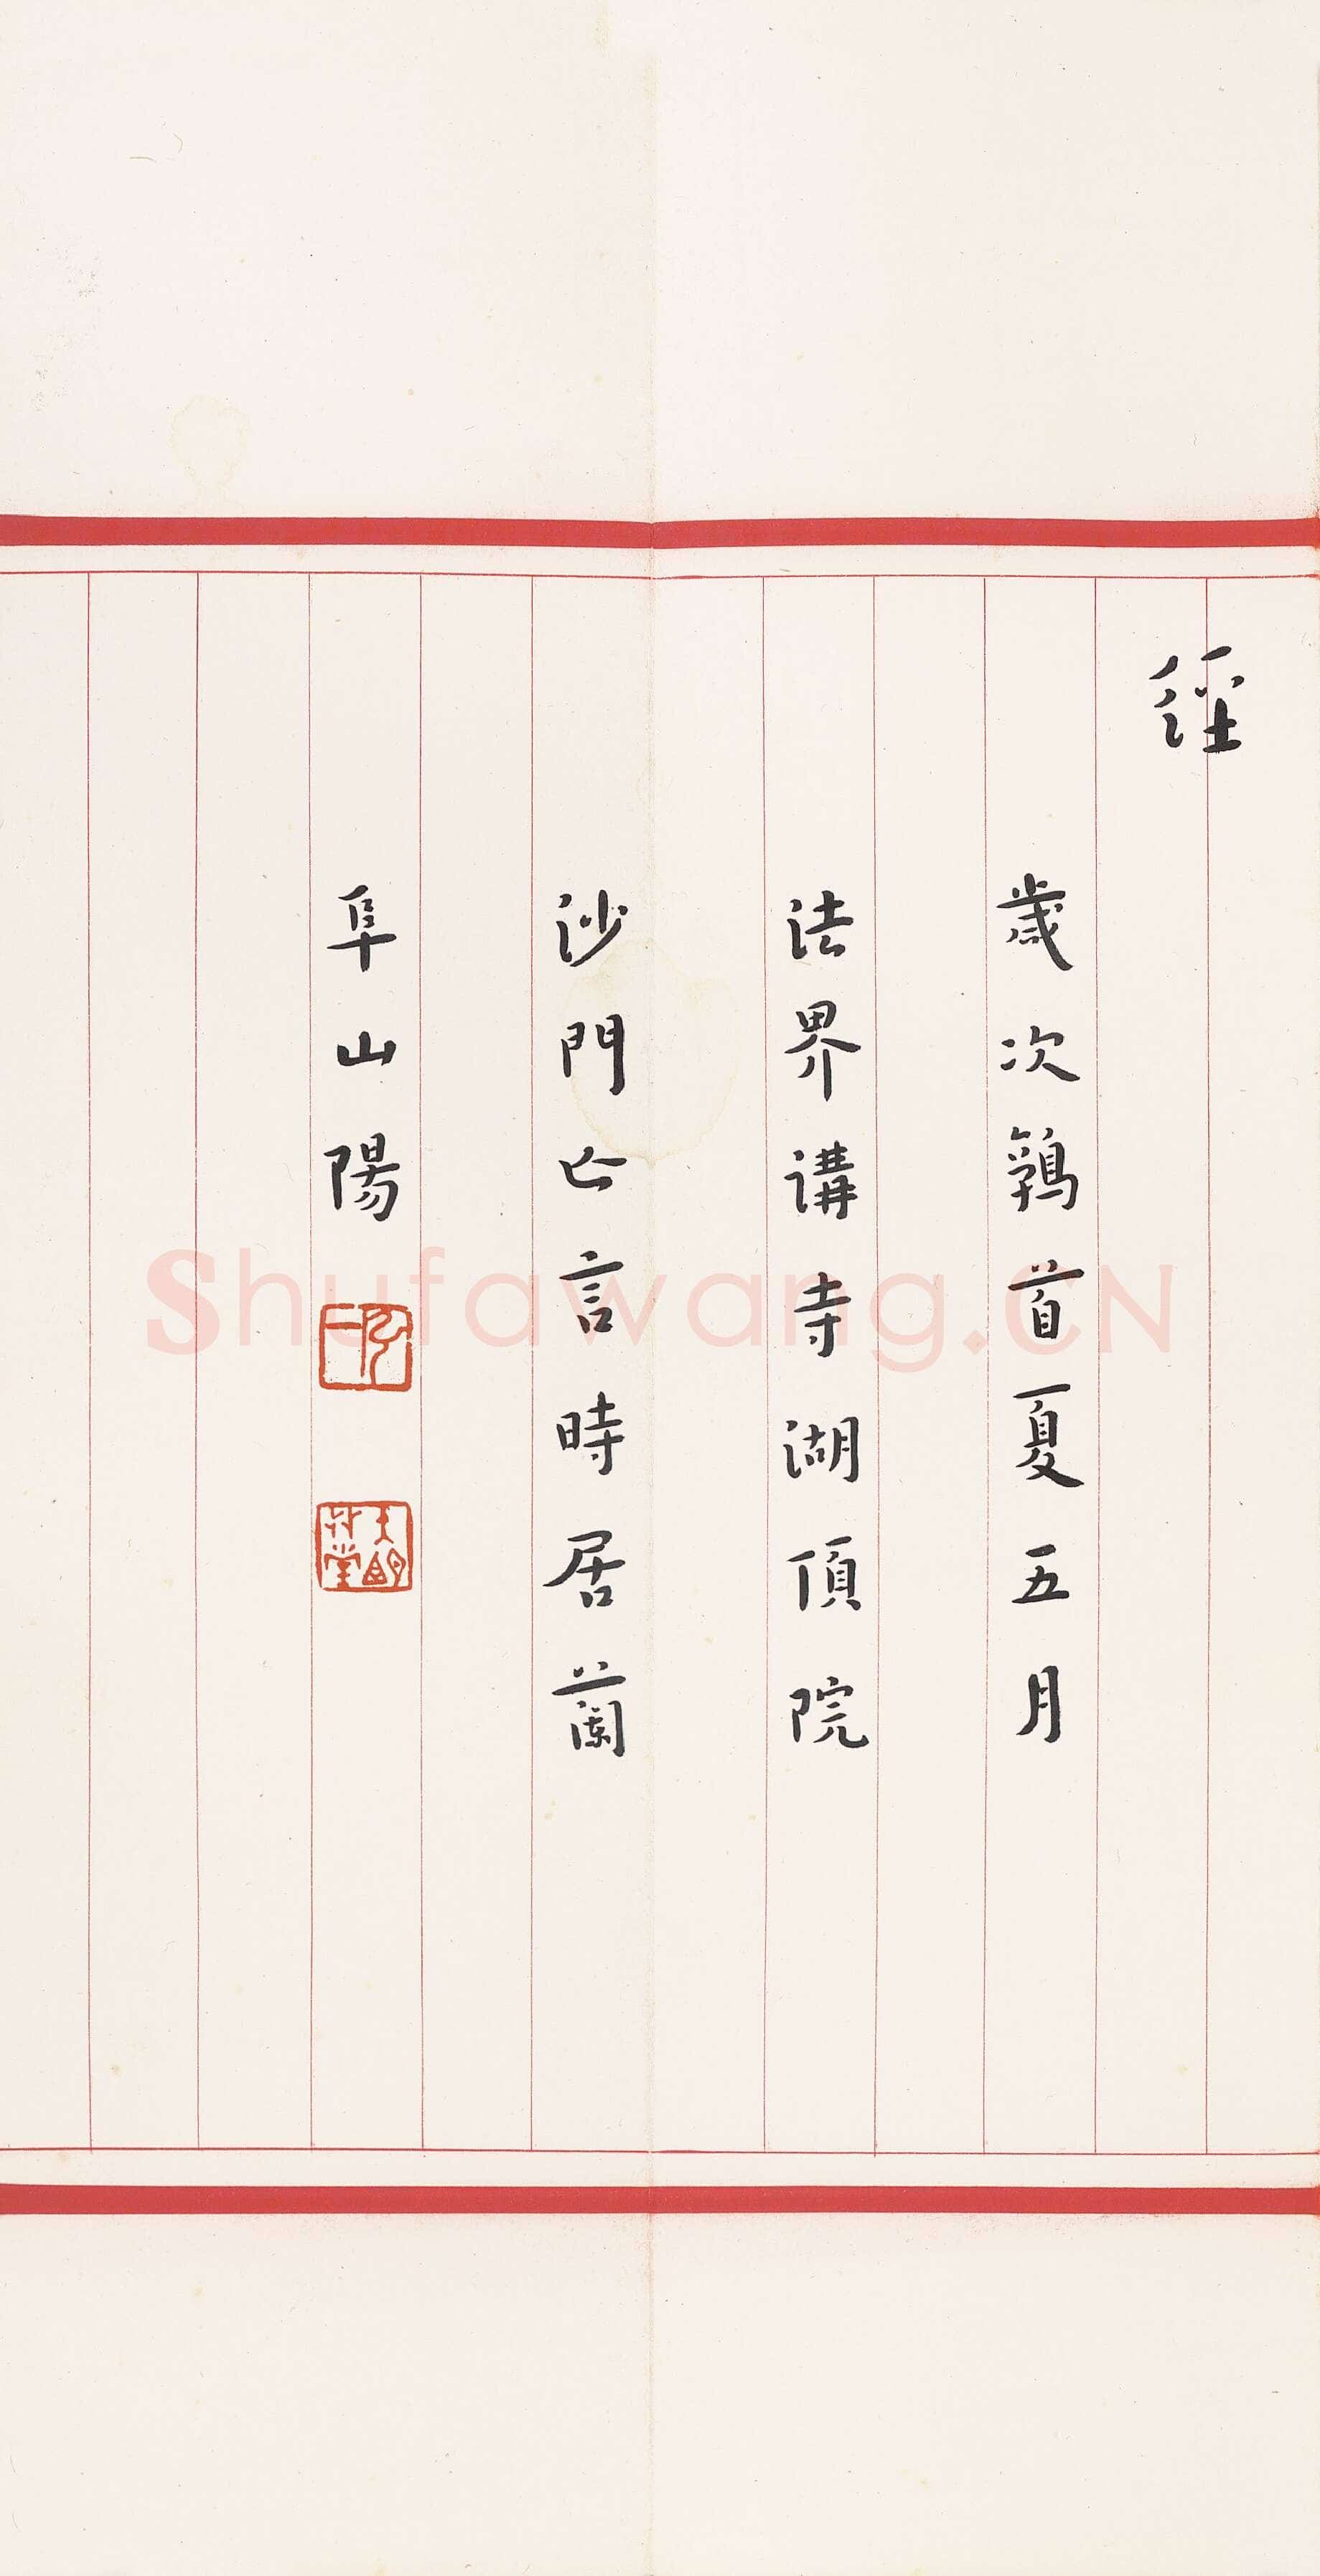 經
歲次鶉首夏五月
法界講寺湖頂院
沙門亡言時居蘭
阜山陽
弘一
Shufawang.CN